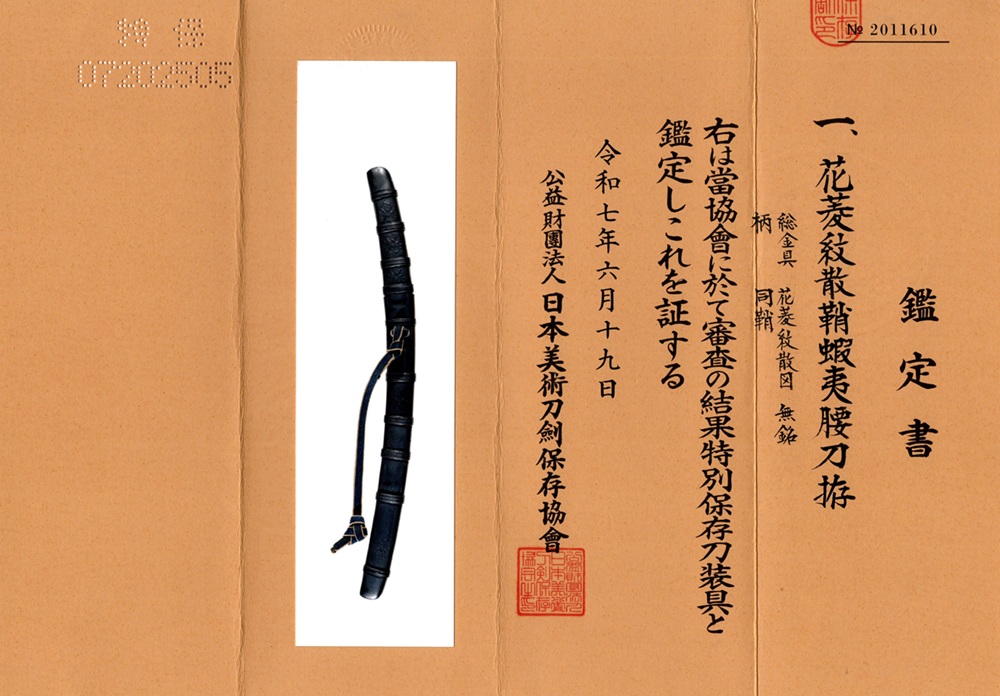 № 2011610
鑑定書
一、花菱紋散鞘蝦夷腰刀拵
総金具 花菱紋散図 無銘
柄 同鞘
右は當協會に於て審査の結果特別保存刀装具と
鑑定しこれを証する
令和七年六月十九日
公益財團法人日本美術刀劍保存協會
特保
07202505